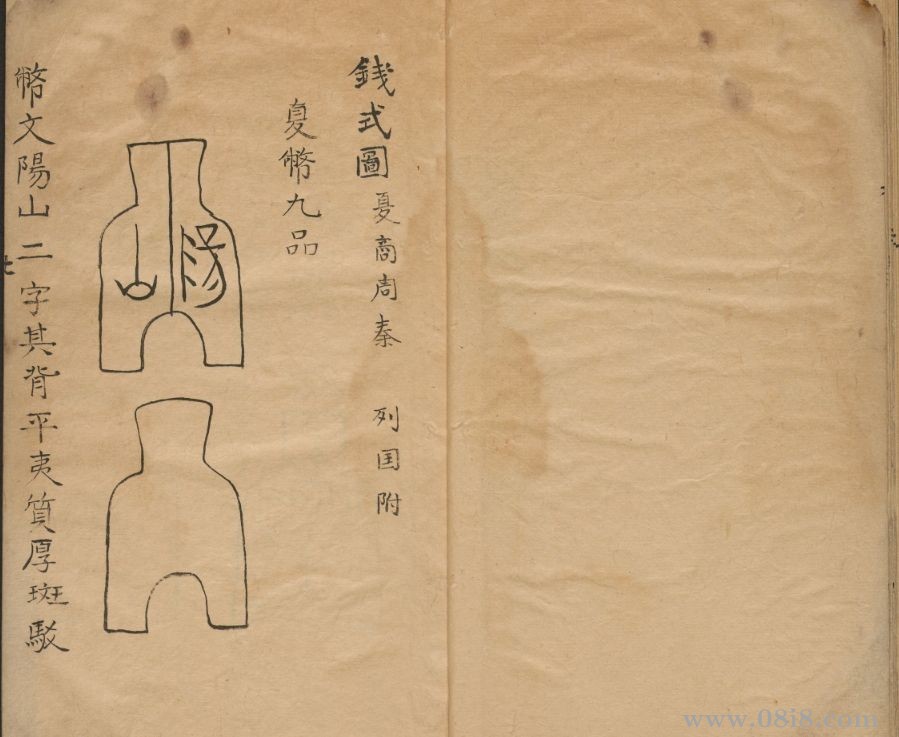 錢式圖 夏商周秦 列国附
夏幣九品
陽
山
幣文陽山二字其背平夷質厚斑駁
www.08i8.com